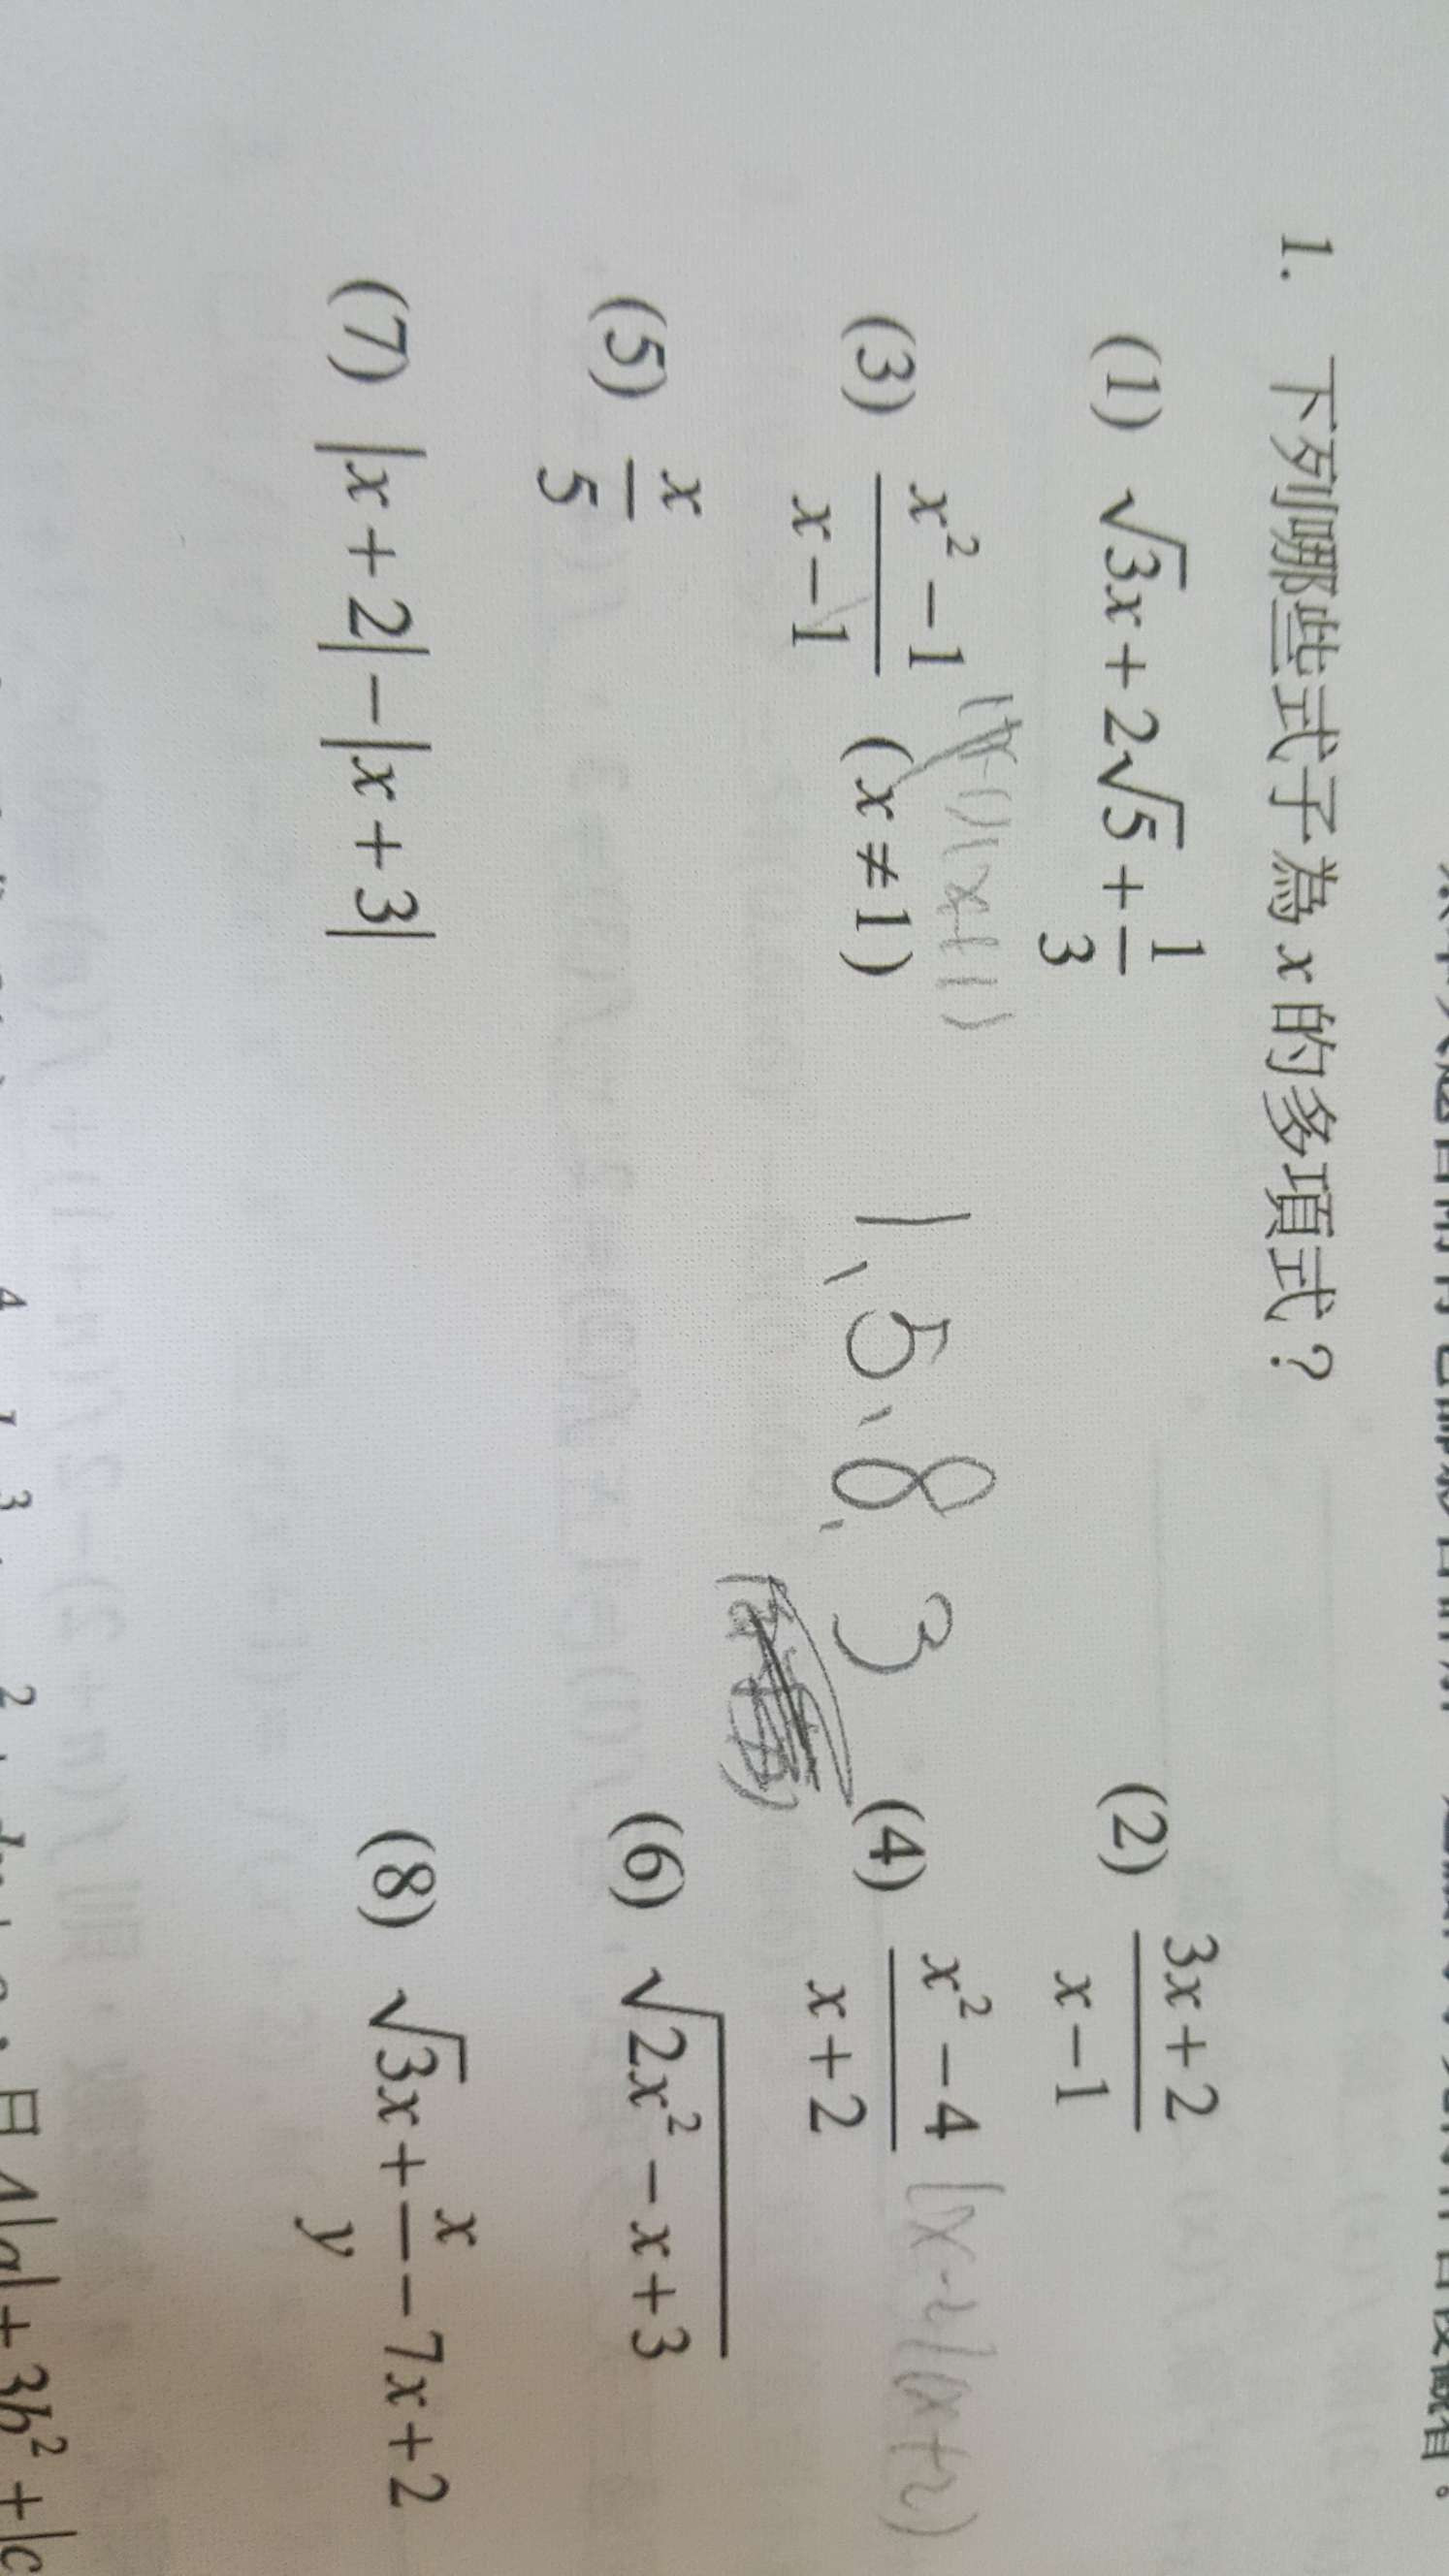 1. 下列哪些式子為 x 的多項式？
(1) √3x + 2√5 + 1/3
(2) (3x + 2)/(x − 1)
(3) (x² − 1)/(x − 1) (x ≠ 1)
1、5、8、3
(4) (x² − 4)/(x + 2) (x-2)(x+2)
(5) x/5
(6) √(2x² − x + 3)
(7) |x + 2| − |x + 3|
(8) √3x + x/y − 7x + 2